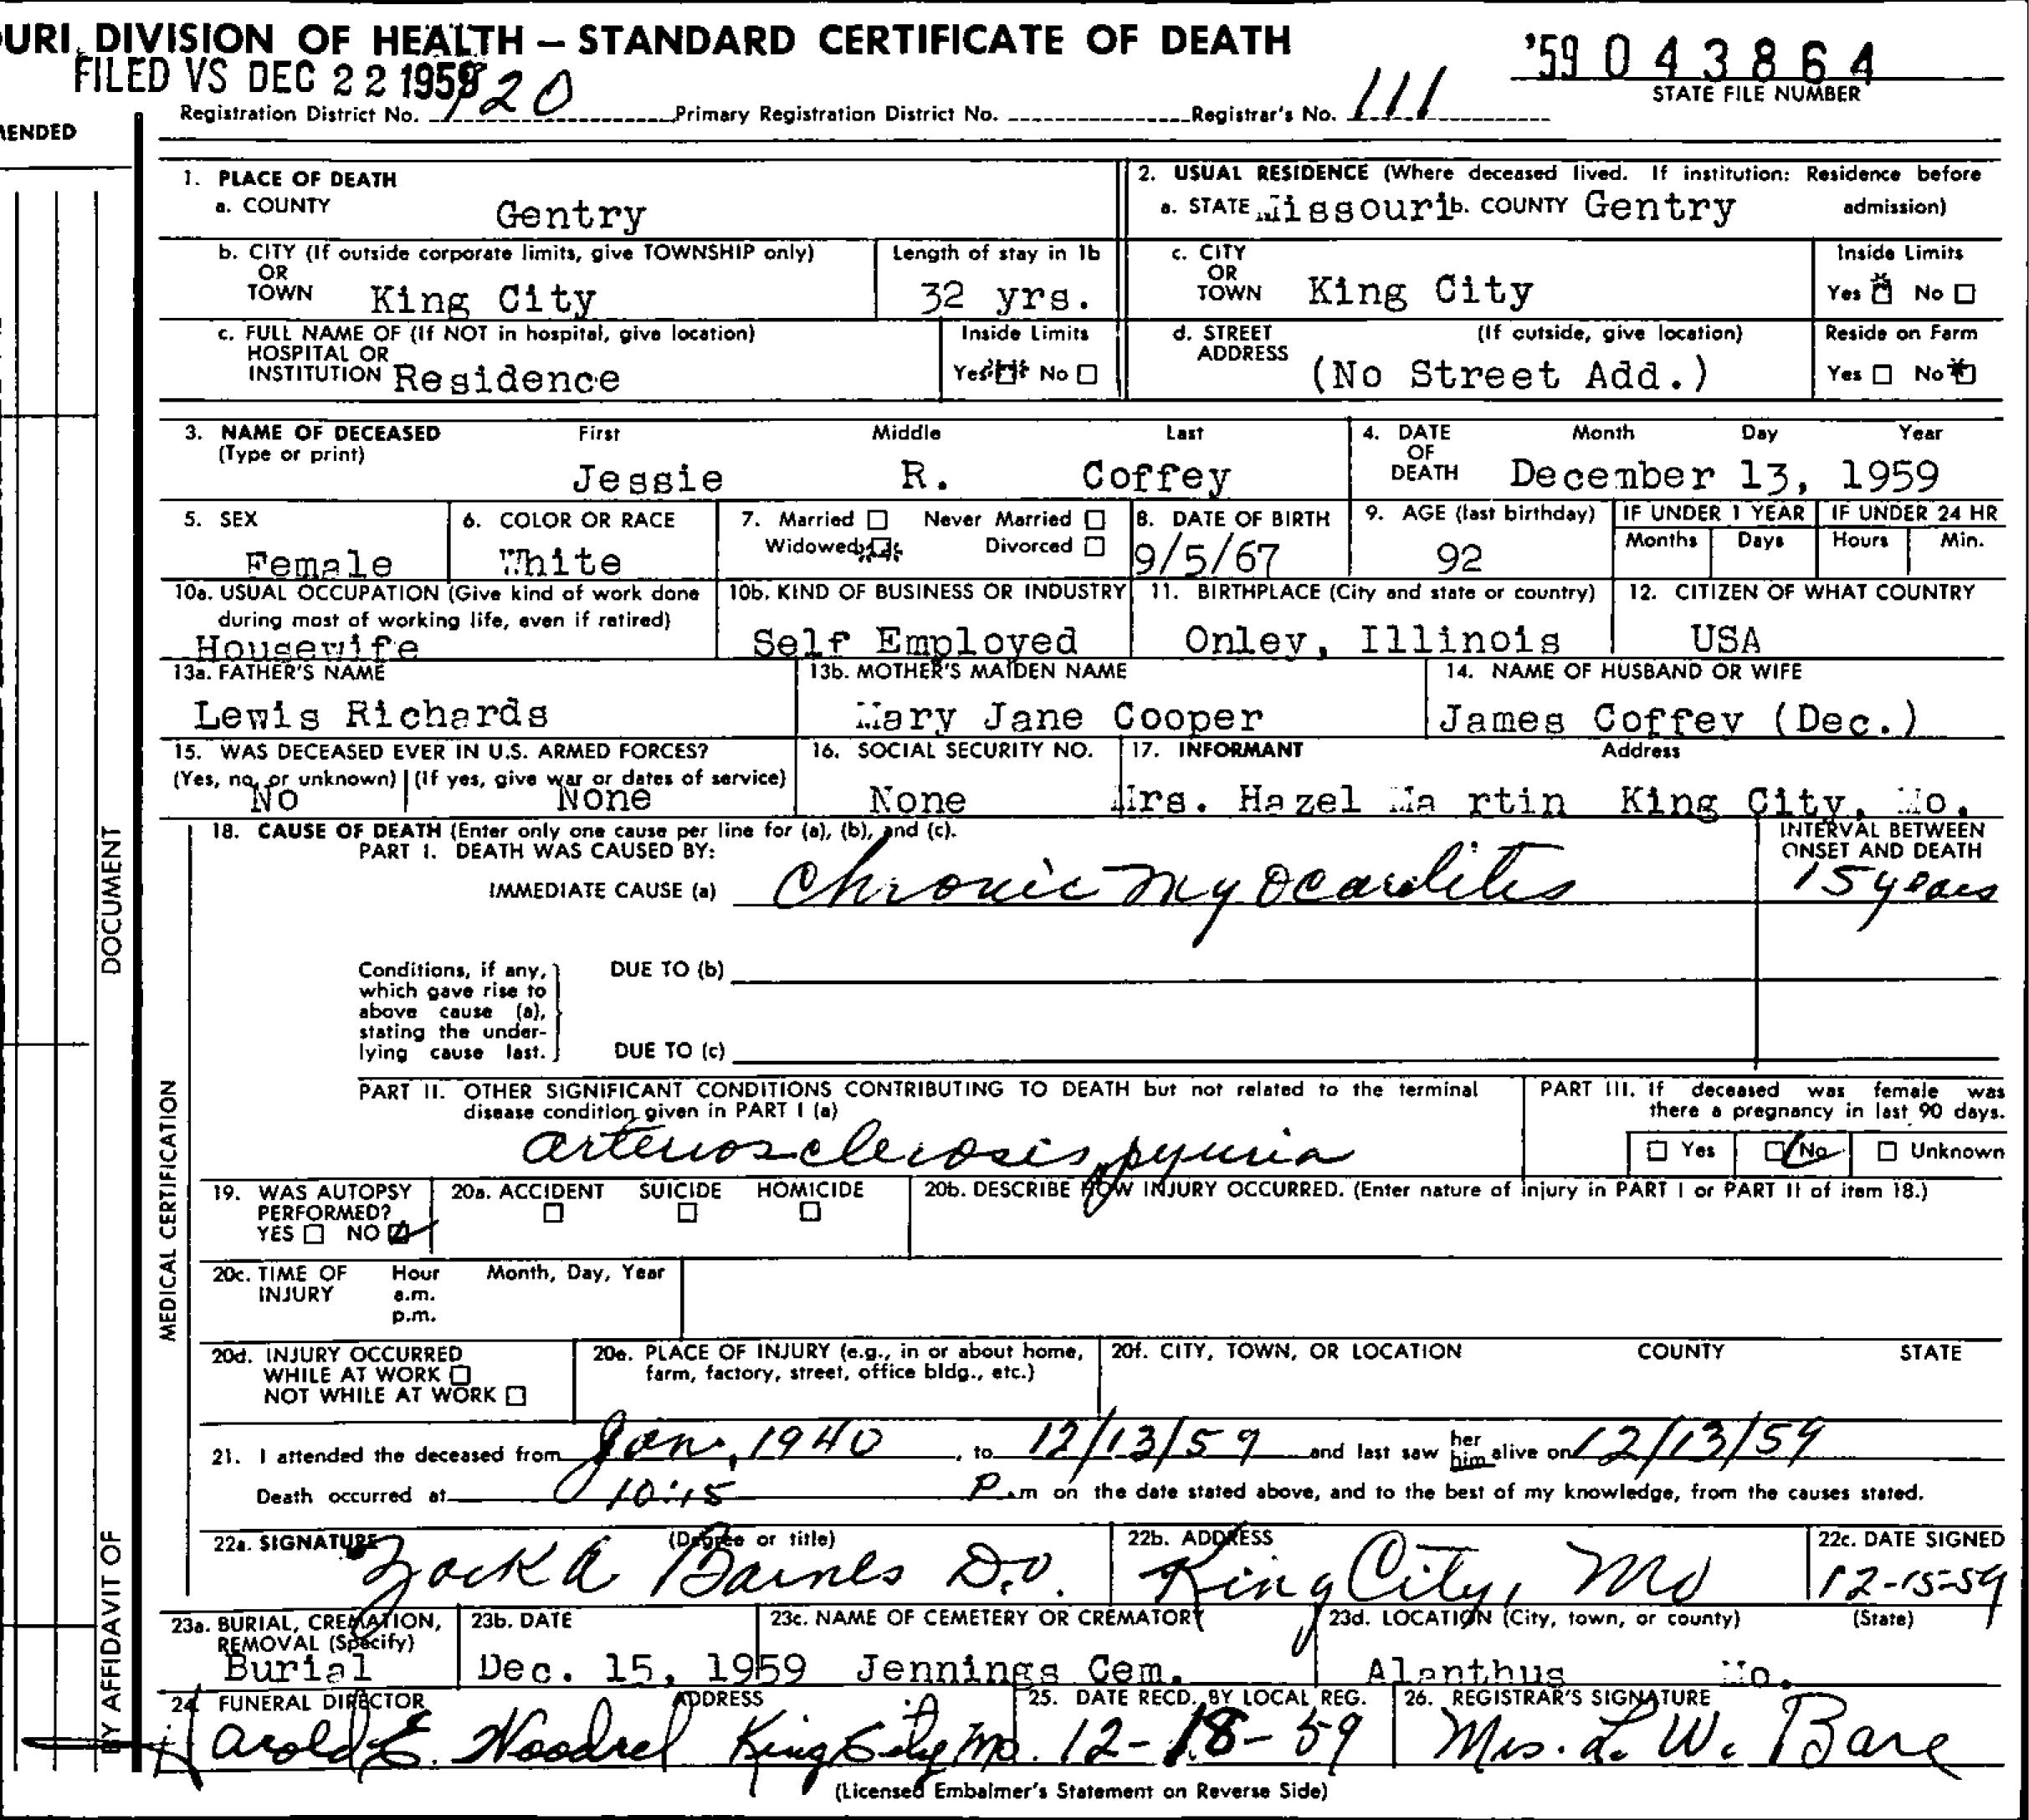 URI DIVISION OF HEALTH – STANDARD CERTIFICATE OF DEATH
'59 043864
STATE FILE NUMBER
FILED VS DEC 22 1959
Registration District No. 120 Primary Registration District No. Registrar's No. 111
ENDED
1. PLACE OF DEATH
a. COUNTY Gentry
2. USUAL RESIDENCE (Where deceased lived. If institution: Residence before admission)
a. STATE Missouri b. COUNTY Gentry
b. CITY (If outside corporate limits, give TOWNSHIP only) OR TOWN King City
Length of stay in 1b 32 yrs.
c. CITY OR TOWN King City
Inside Limits Yes No
c. FULL NAME OF (If NOT in hospital, give location) HOSPITAL OR INSTITUTION Residence
Inside Limits Yes No
d. STREET ADDRESS (If outside, give location) (No Street Add.)
Reside on Farm Yes No
3. NAME OF DECEASED (Type or print) First Middle Last
Jessie R. Coffey
4. DATE OF DEATH Month Day Year
December 13, 1959
5. SEX Female
6. COLOR OR RACE White
7. Married Never Married Widowed Divorced
8. DATE OF BIRTH 9/5/67
9. AGE (last birthday) 92
IF UNDER 1 YEAR Months Days
IF UNDER 24 HR Hours Min.
10a. USUAL OCCUPATION (Give kind of work done during most of working life, even if retired) Housewife
10b. KIND OF BUSINESS OR INDUSTRY Self Employed
11. BIRTHPLACE (City and state or country) Onley, Illinois
12. CITIZEN OF WHAT COUNTRY USA
13a. FATHER'S NAME Lewis Richards
13b. MOTHER'S MAIDEN NAME Mary Jane Cooper
14. NAME OF HUSBAND OR WIFE James Coffey (Dec.)
15. WAS DECEASED EVER IN U.S. ARMED FORCES?
(Yes, no, or unknown) No (If yes, give war or dates of service) None
16. SOCIAL SECURITY NO. None
17. INFORMANT Address
Mrs. Hazel Ma rtin King City, Mo.
18. CAUSE OF DEATH (Enter only one cause per line for (a), (b), and (c).
PART I. DEATH WAS CAUSED BY:
INTERVAL BETWEEN ONSET AND DEATH
IMMEDIATE CAUSE (a) Chronic Myocarditis 15 years
Conditions, if any, which gave rise to above cause (a), stating the under-lying cause last.
DUE TO (b)
DUE TO (c)
PART II. OTHER SIGNIFICANT CONDITIONS CONTRIBUTING TO DEATH but not related to the terminal disease condition given in PART I (a)
arteriosclerosis, pyuria
PART III. If deceased was female was there a pregnancy in last 90 days.
Yes No Unknown
19. WAS AUTOPSY PERFORMED? YES NO
20a. ACCIDENT SUICIDE HOMICIDE
20b. DESCRIBE HOW INJURY OCCURRED. (Enter nature of injury in PART I or PART II of item 18.)
20c. TIME OF INJURY Hour a.m. p.m. Month, Day, Year
20d. INJURY OCCURRED WHILE AT WORK NOT WHILE AT WORK
20e. PLACE OF INJURY (e.g., in or about home, farm, factory, street, office bldg., etc.)
20f. CITY, TOWN, OR LOCATION COUNTY STATE
21. I attended the deceased from Jan, 1940, to 12/13/59 and last saw her him alive on 12/13/59
Death occurred at 10:15 P.m on the date stated above, and to the best of my knowledge, from the causes stated.
22a. SIGNATURE (Degree or title) Zack A Barnes D.O.
22b. ADDRESS King City, Mo
22c. DATE SIGNED 12-15-59
23a. BURIAL, CREMATION, REMOVAL (Specify) Burial
23b. DATE Dec. 15, 1959
23c. NAME OF CEMETERY OR CREMATORY Jennings Cem.
23d. LOCATION (City, town, or county) (State) Alanthus Mo.
24 FUNERAL DIRECTOR ADDRESS
Harold E. King City Mo.
25. DATE RECD. BY LOCAL REG. 12-18-59
26. REGISTRAR'S SIGNATURE Mrs. L. W. Bare
(Licensed Embalmer's Statement on Reverse Side)
DOCUMENT
MEDICAL CERTIFICATION
BY AFFIDAVIT OF